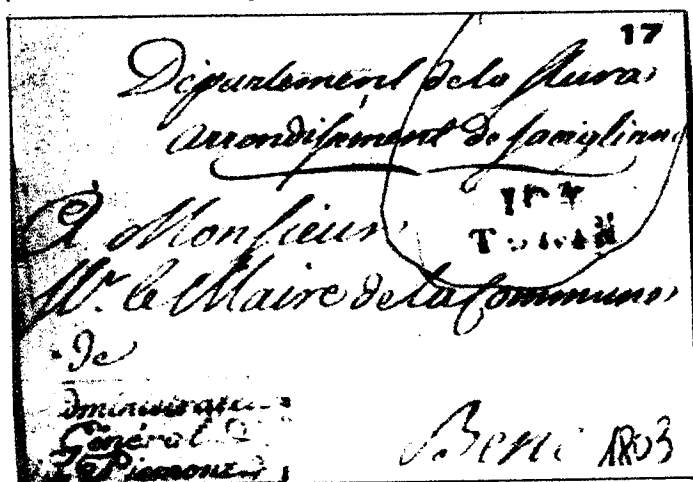 17
Département de la Stura
arrondissement de Savigliano
A Monsieur
Mr. le Maire de la Commune
De
Général
Piemont
Bene 1803